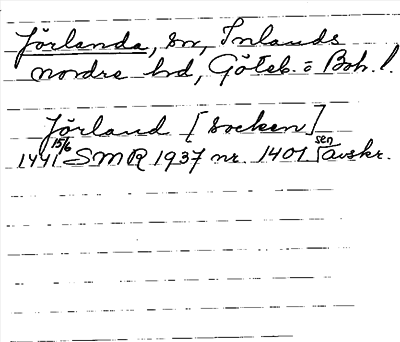 Jörlanda, sn, Inlands
nordre hd, Göteb. o Boh. l.
Jörland [socken]
1441 15/6 SMR 1937 nr. 1401 sen avskr.